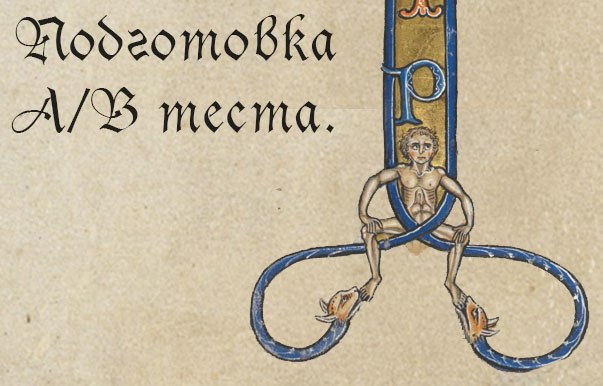 Подготовка
А/В теста.
р